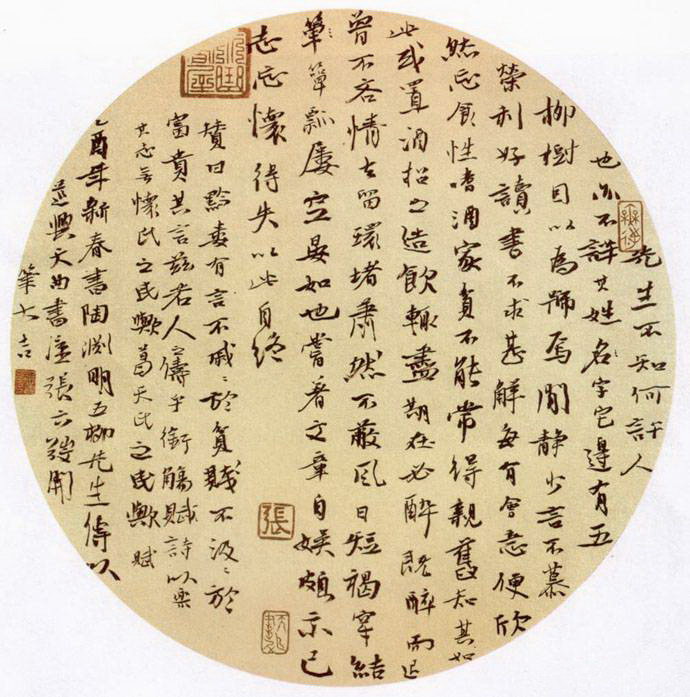 先生不知何許人
也亦不詳其姓名字宅邊有五
柳樹因以為號焉閒静少言不慕
榮利好讀書不求甚解每有會意便欣
然忘食性嗜酒家貧不能常得親舊知其如
此或置酒招之造飲輒盡期在必醉既醉而退
曾不吝情去留環堵蕭然不蔽風日短褐穿結
簞瓢屢空晏如也嘗著文章自娛頗示己
志忘懷得失以此自終
贊曰黔婁有言不戚戚於貧賤不汲汲於
富貴其言茲若人之儔乎銜觴賦詩以樂
其志無懷氏之民歟葛天氏之民歟賦
乙酉年新春書陶淵明五柳先生傳以
興天曲書張六開
筆大吉
張